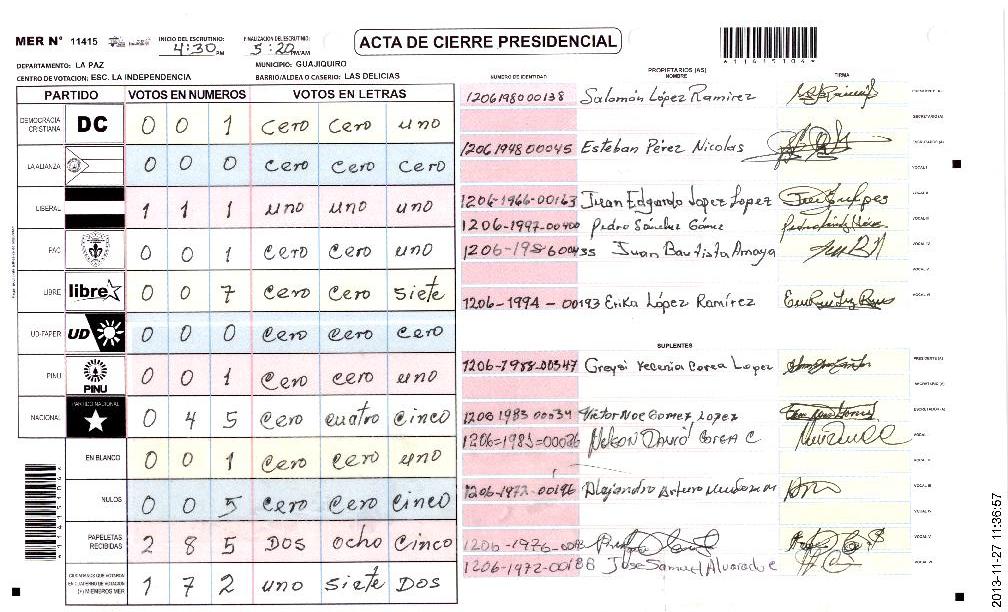 MER N° 11415
INICIO DEL ESCRUTINIO: 4:30 PM
FINALIZACIÓN DEL ESCRUTINIO: 5:20 PM/AM
ACTA DE CIERRE PRESIDENCIAL
DEPARTAMENTO: LA PAZ MUNICIPIO: GUAJIQUIRO
CENTRO DE VOTACION: ESC. LA INDEPENDENCIA BARRIO/ALDEA O CASERIO: LAS DELICIAS
PARTIDO VOTOS EN NUMEROS VOTOS EN LETRAS
DEMOCRACIA CRISTIANA DC 0 0 1 cero cero uno
LA ALIANZA 0 0 0 cero cero cero
LIBERAL 1 1 1 uno uno uno
PAC 0 0 1 cero cero uno
LIBRE libre 0 0 7 cero cero siete
UD-FAPER UD 0 0 0 cero cero cero
PINU PINU 0 0 1 cero cero uno
NACIONAL PARTIDO NACIONAL 0 4 5 cero cuatro cinco
EN BLANCO 0 0 1 cero cero uno
NULOS 0 0 5 cero cero cinco
PAPELETAS RECIBIDAS 2 8 5 DOS ocho cinco
CIUDADANOS QUE VOTARON EN CUADERNO DE VOTACION (+) MIEMBROS MER 1 7 2 uno siete DOS
PROPIETARIOS (AS)
NUMERO DE IDENTIDAD NOMBRE FIRMA
1206198000138 Salomón López Ramirez
1206194800045 Esteban Pérez Nicolas
1206-1966-00163 Juan Edgardo Lopez Lopez
1206-1997-00400 Pedro Sánchez Gómez
Juan Bautista Amaya
1206-1994-00193 Erika López Ramírez
SUPLENTES
1206-1988-00347 Greysi Yecenia Corea Lopez
1206 1983 00034 Victor Noe Gomez Lopez
1206=1985=00026 Nelson David Corea C
1206-1972-00196 Alejandro Arturo Muñoz M
1206-1976-
1206-1972-00188 Jose Samuel Alvarado c
2013-11-27 11:36:57